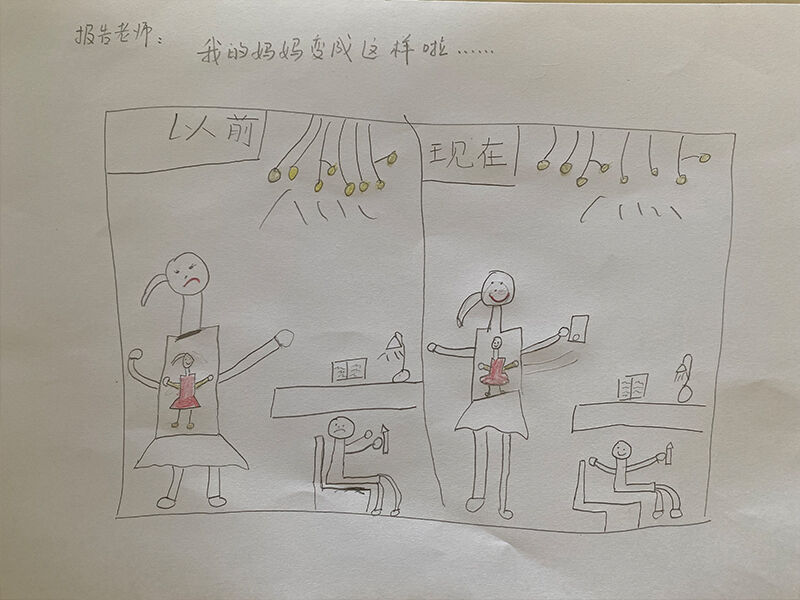 报告老师:
我的妈妈变成这样啦……
以前
现在